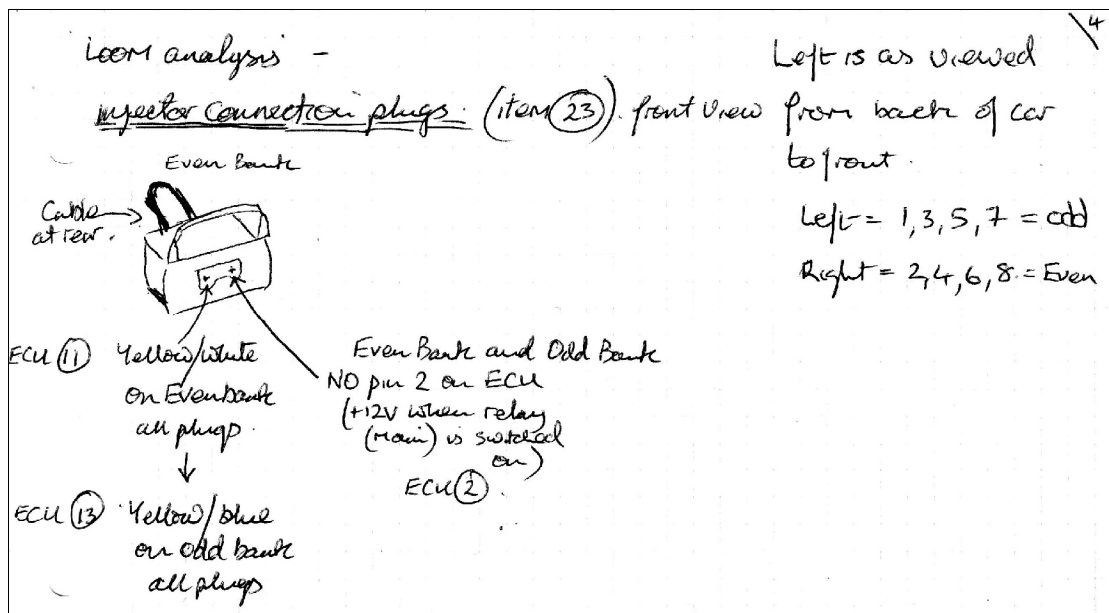 4
Loom analysis -
injector connection plugs. (item 23). front view
Left is as viewed
from back of car
to front.
Left = 1,3,5,7 = odd
Right = 2,4,6,8 = Even
Even Bank
Cable
at rear.
ECU 11 Yellow/white
on Even bank
all plugs.
ECU 13 Yellow/blue
on odd bank
all plugs
Even Bank and Odd Bank
NO pin 2 on ECU
(+12V when relay
(main) is switched
on)
ECU 2.